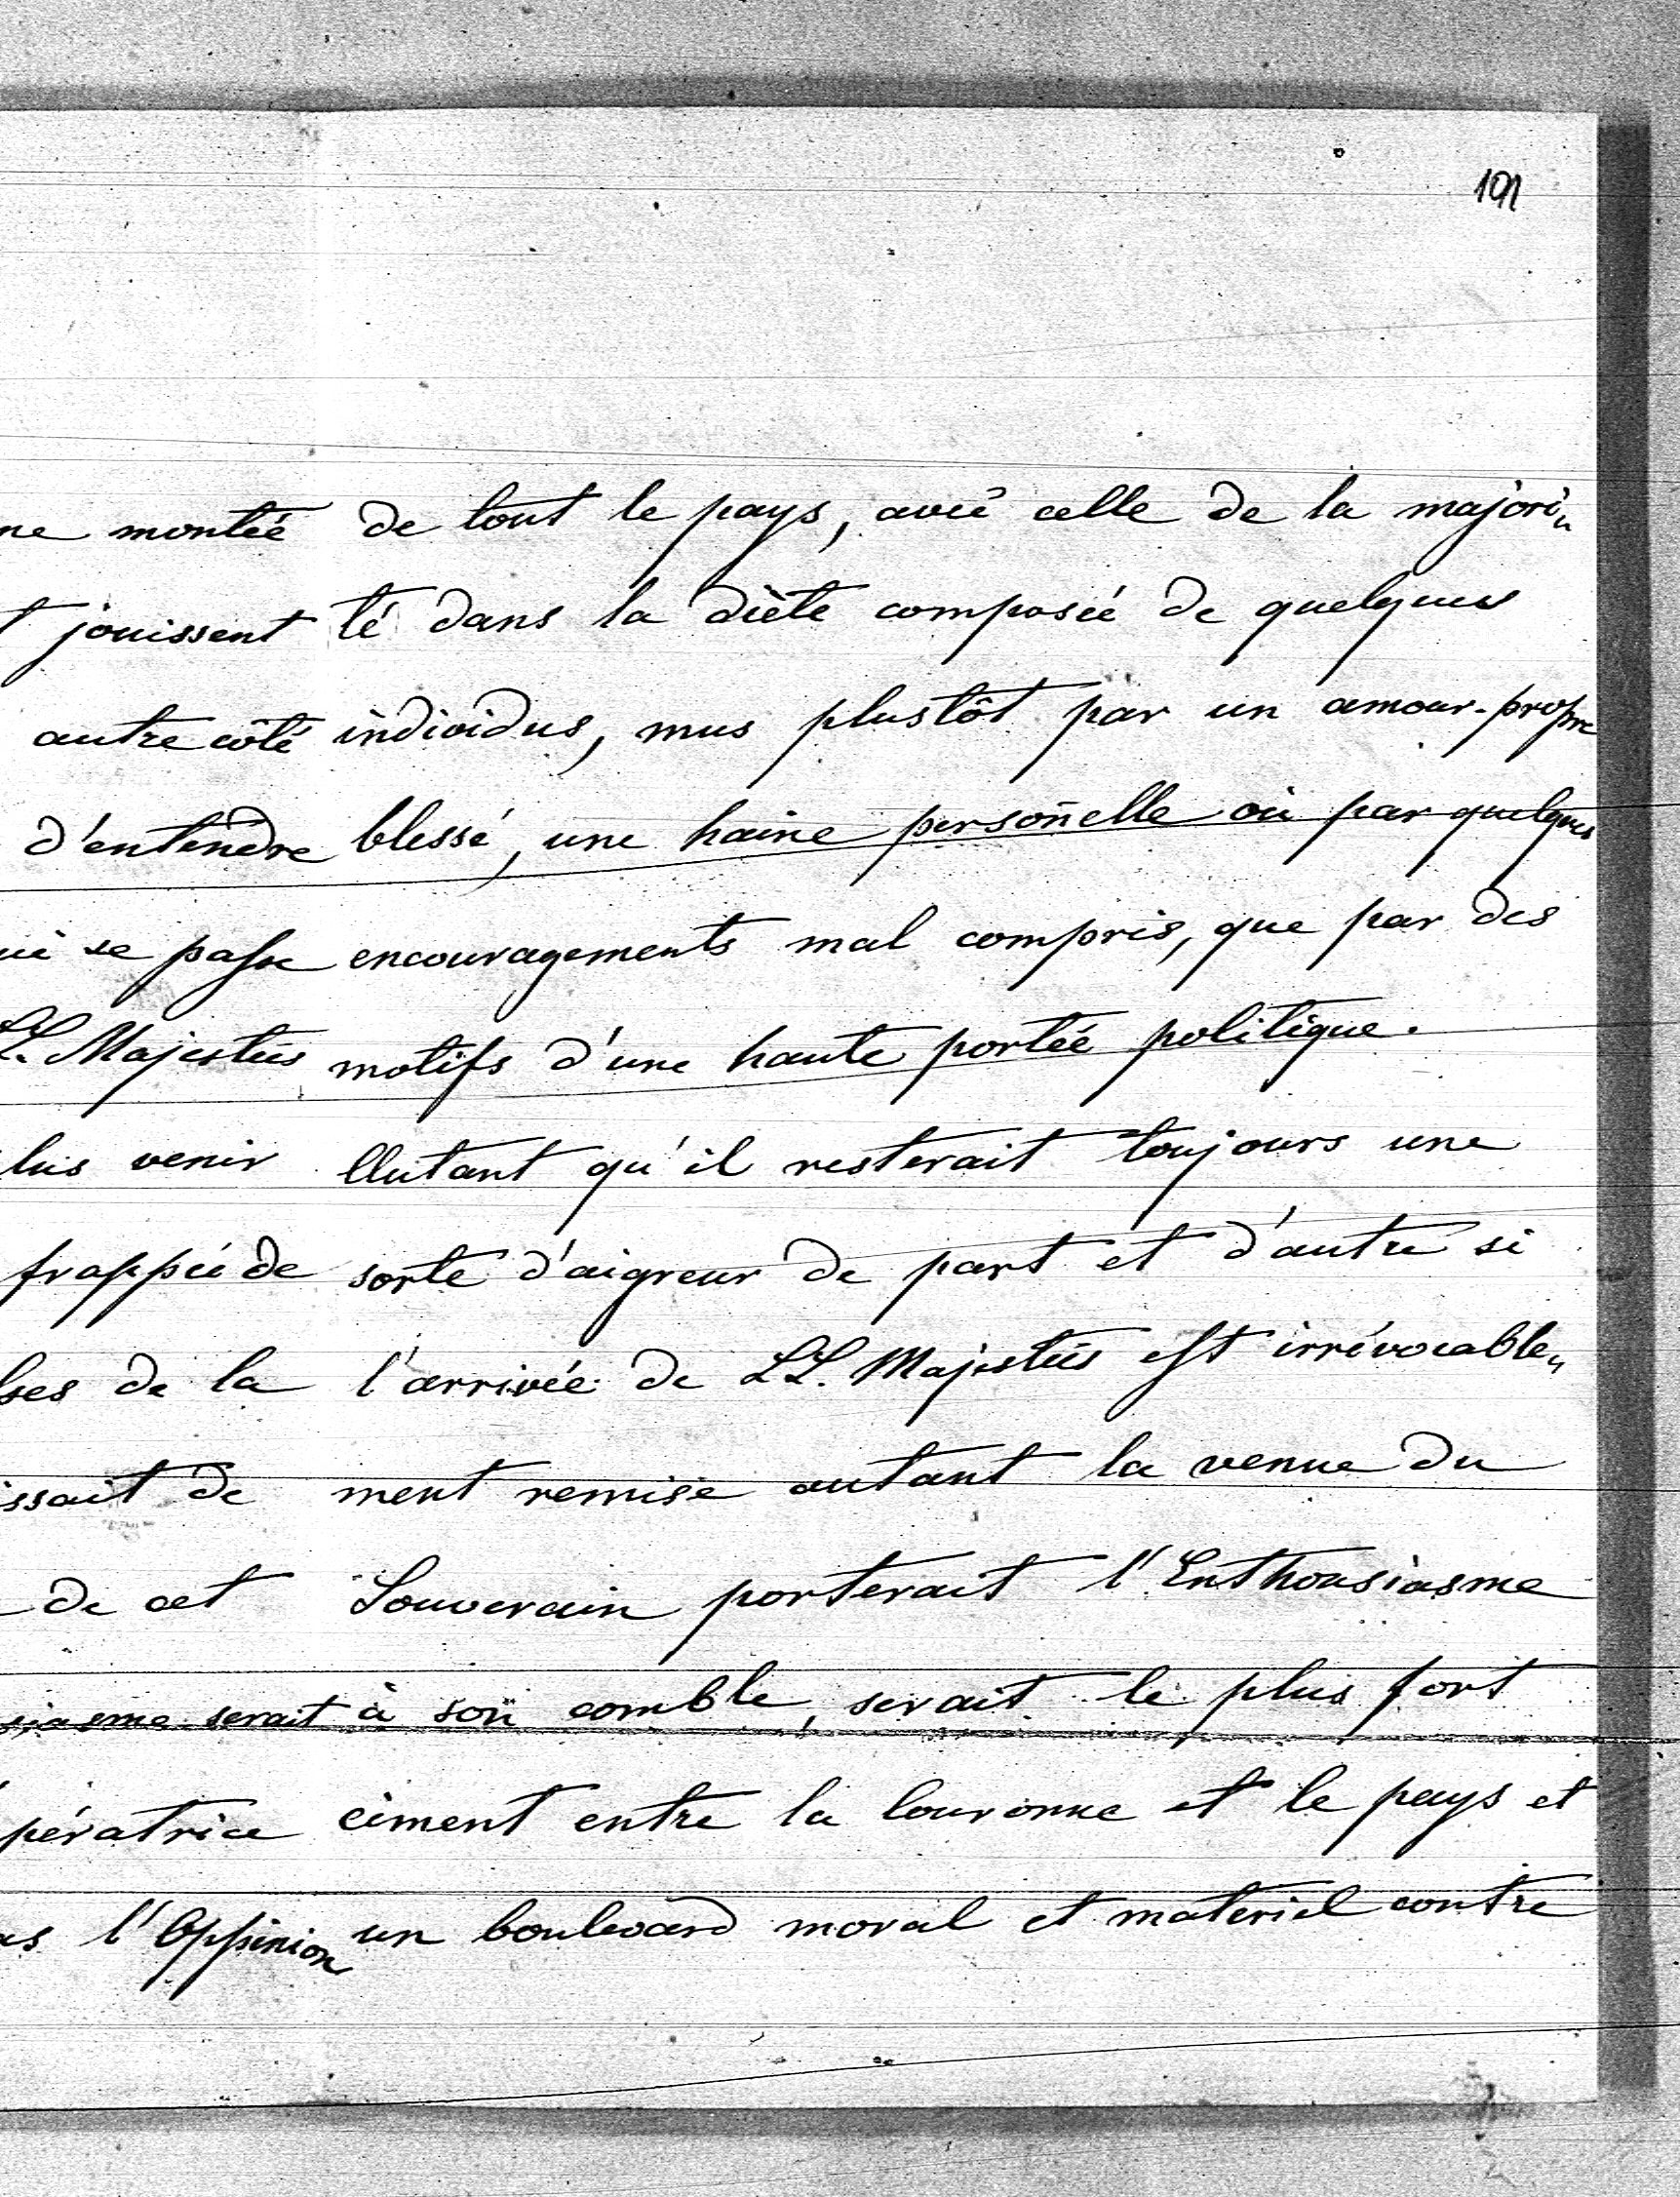 191
ne montée
t jouissent
autre côté
d'entendre
ui se passe
LL. Majestées
lus venir
frappée de
ses de la
issait de
de cet
siasme serait
pératrice
as l'Oppinion
de tout le pays, avec celle de la majori„
té dans la diète composée de quelques
individus, mus plustôt par un amour-propre
blessé, une haine personelle ou par quelques
encouragements mal compris, que par des
motifs d'une haute portée politique.
Autant qu'il resterait toujours une
sorte d'aigreur de part et d'autre si
l'arrivée de LL. Majestées est irrévocable„
ment remise autant la venue du
Souverain porterait l'Enthousiasme
à son comble, serait le plus fort
ciment entre la Couronne et le pays et
un boulevard moral et materiel contre